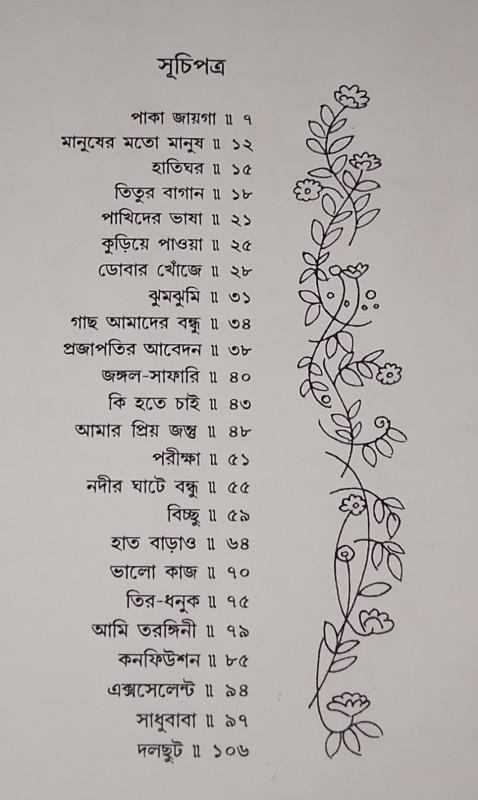 সূচিপত্র
পাকা জায়গা ॥ ৭
মানুষের মতো মানুষ ॥ ১২
হাতিঘর ॥ ১৫
তিতুর বাগান ॥ ১৮
পাখিদের ভাষা ॥ ২১
কুড়িয়ে পাওয়া ॥ ২৫
ডোবার খোঁজে ॥ ২৮
ঝুমঝুমি ॥ ৩১
গাছ আমাদের বন্ধু ॥ ৩৪
প্রজাপতির আবেদন ॥ ৩৮
জঙ্গল-সাফারি ॥ ৪০
কি হতে চাই ॥ ৪৩
আমার প্রিয় জন্তু ॥ ৪৮
পরীক্ষা ॥ ৫১
নদীর ঘাটে বন্ধু ॥ ৫৫
বিচ্ছু ॥ ৫৯
হাত বাড়াও ॥ ৬৪
ভালো কাজ ॥ ৭০
তির-ধনুক ॥ ৭৫
আমি তরঙ্গিনী ॥ ৭৯
কনফিউশন ॥ ৮৫
এক্সসেলেন্ট ॥ ৯৪
সাধুবাবা ॥ ৯৭
দলছুট ॥ ১০৬